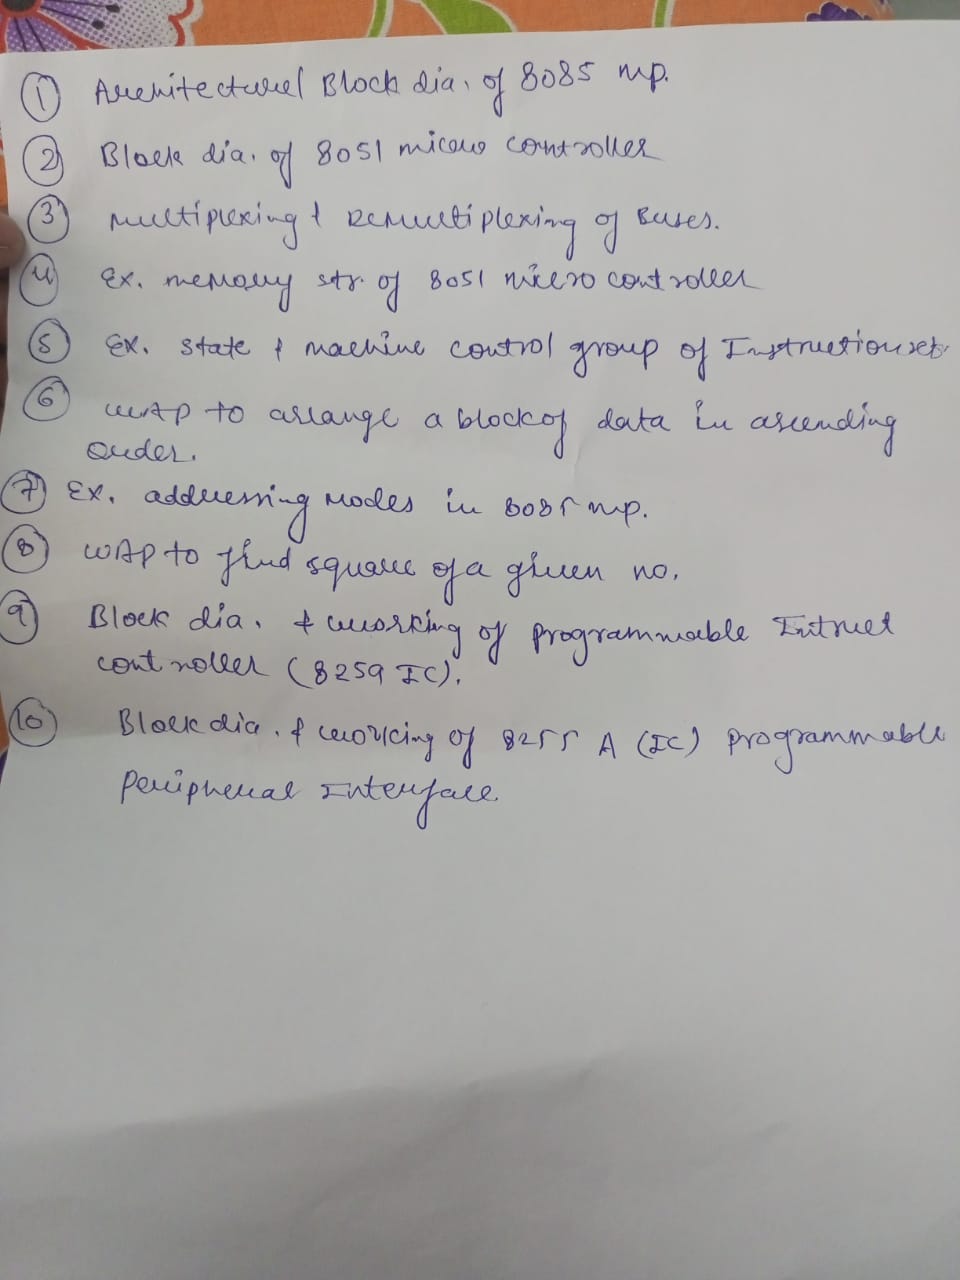 ① Architectural Block dia. of 8085 mp.
② Block dia. of 8051 micro controller
③ Multiplexing & Demultiplexing of Buses.
④ Ex. memory str. of 8051 micro controller
⑤ Ex. State & machine control group of Instruction set.
⑥ WAP to arrange a block of data in ascending
order.
⑦ Ex. addressing modes in 8085 mp.
⑧ WAP to find square of a given no.
⑨ Block dia. & working of programmable Intruct
controller (8259 IC).
⑩ Block dia. & working of 8255 A (IC) programmable
peripheral Interface